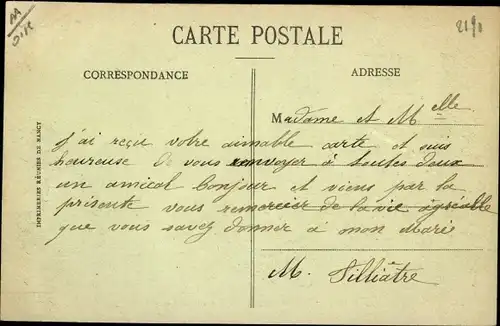 AA
2190
CARTE POSTALE
CORRESPONDANCE
ADRESSE
Madame et Melle
J'ai reçu votre aimable carte et suis
heureuse de vous renvoyer à toutes deux
un amical bonjour et viens par la
présente vous remercier de la vie agréable
que vous savez donner à mon Mari
M. Silliâtre
IMPRIMERIES RÉUNIES DE NANCY